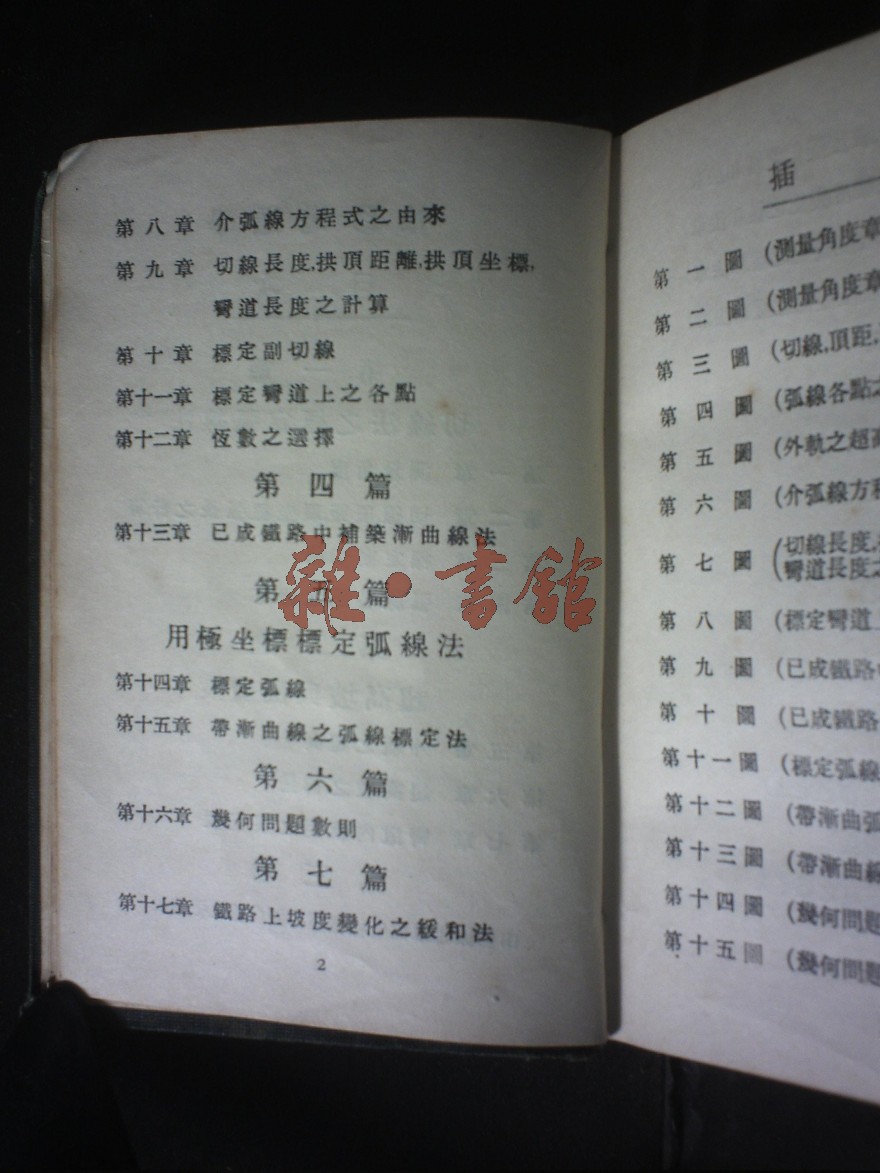 第八章 介弧線方程式之由來
第九章 切線長度,拱頂距離,拱頂坐標,
彎道長度之計算
第十章 標定副切線
第十一章 標定彎道上之各點
第十二章 恆數之選擇
第四篇
第十三章 已成鐵路中補築漸曲線法
第五篇
雜·書館
用極坐標標定弧線法
第十四章 標定弧線
第十五章 帶漸曲線之弧線標定法
第六篇
第十六章 幾何問題數則
第七篇
第十七章 鐵路上坡度變化之緩和法
2
插
第一圖 (測量角度章
第二圖 (測量角度章
第三圖 (切線,頂距,
第四圖 (弧線各點之
第五圖 (外軌之超高
第六圖 (介弧線方程
第七圖 (切線長度,
彎道長度之
第八圖 (標定彎道上
第九圖 (已成鐵路中
第十圖 (已成鐵路
第十一圖 (標定弧線
第十二圖 (帶漸曲弧
第十三圖 (帶漸曲線
第十四圖 (幾何問題
第十五圖 (幾何問題